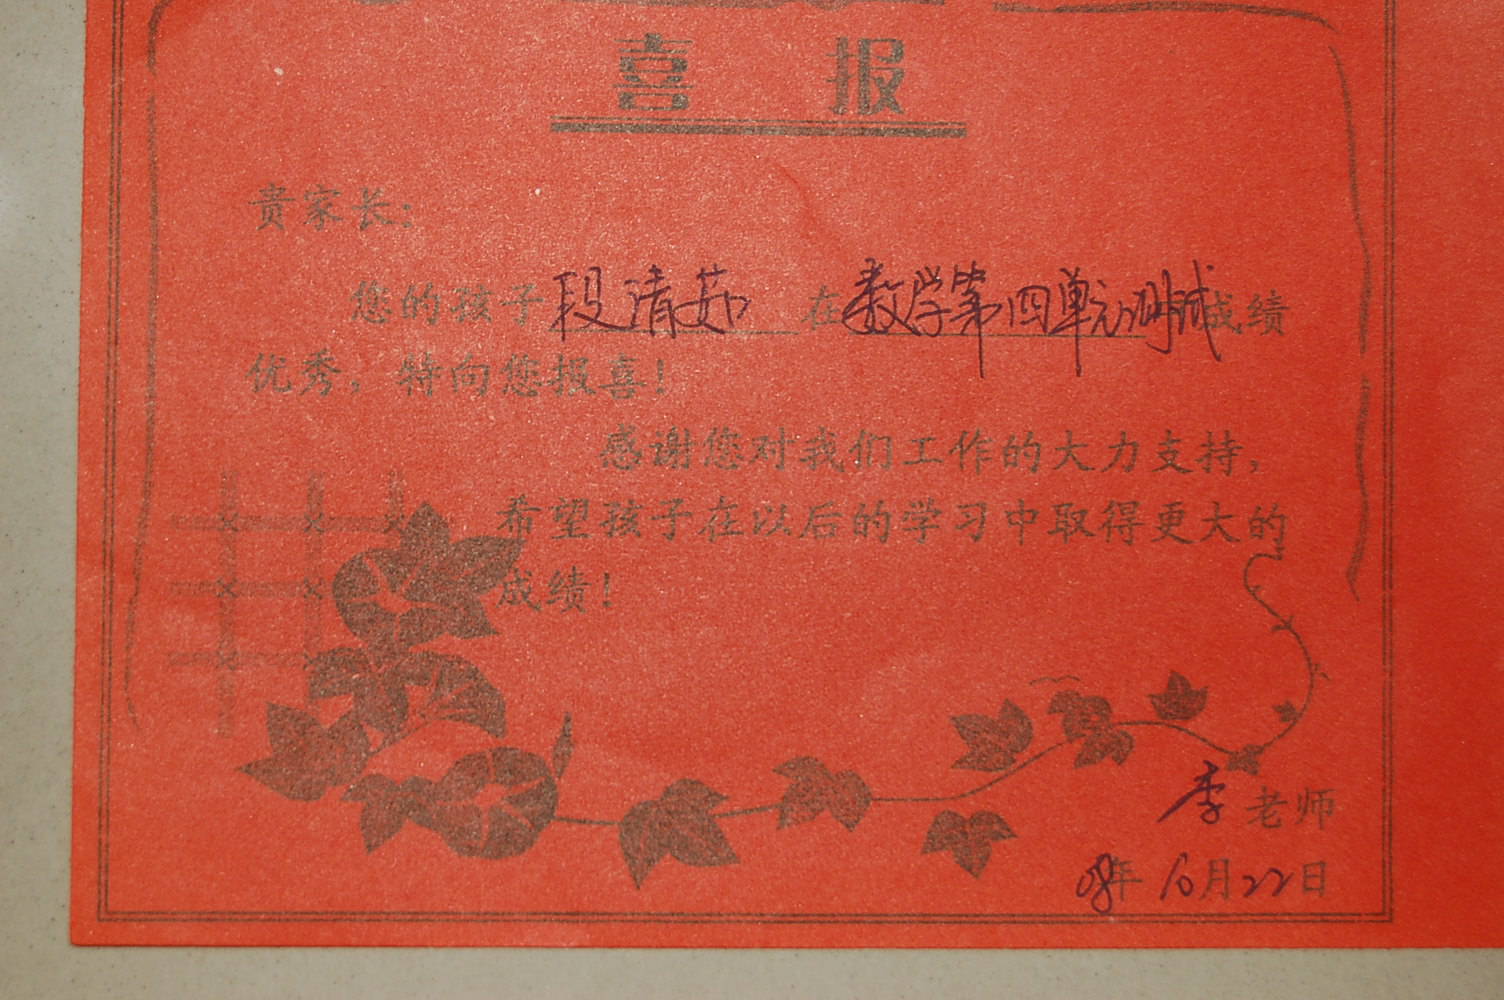 喜报
贵家长：
您的孩子段清茹在数学第四单元测试成绩
优秀，特向您报喜！
感谢您对我们工作的大力支持，
希望孩子在以后的学习中取得更大的
成绩！
李老师
08年10月22日